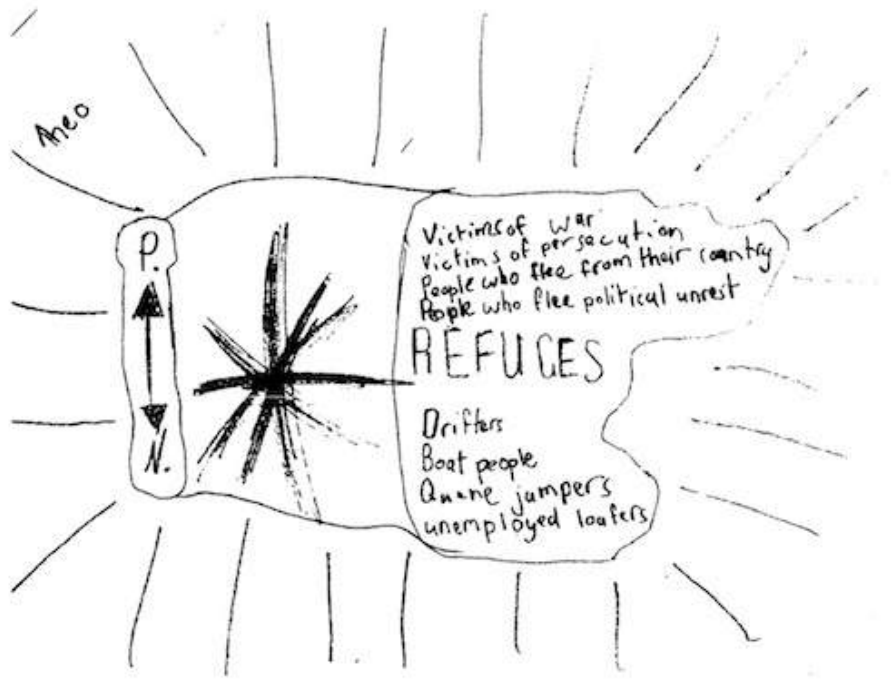 Aneo
P.
N.
Victims of war
Victims of persecution
People who flee from their country
People who flee political unrest
REFUGES
Drifters
Boat people
jumpers
unemployed loafers